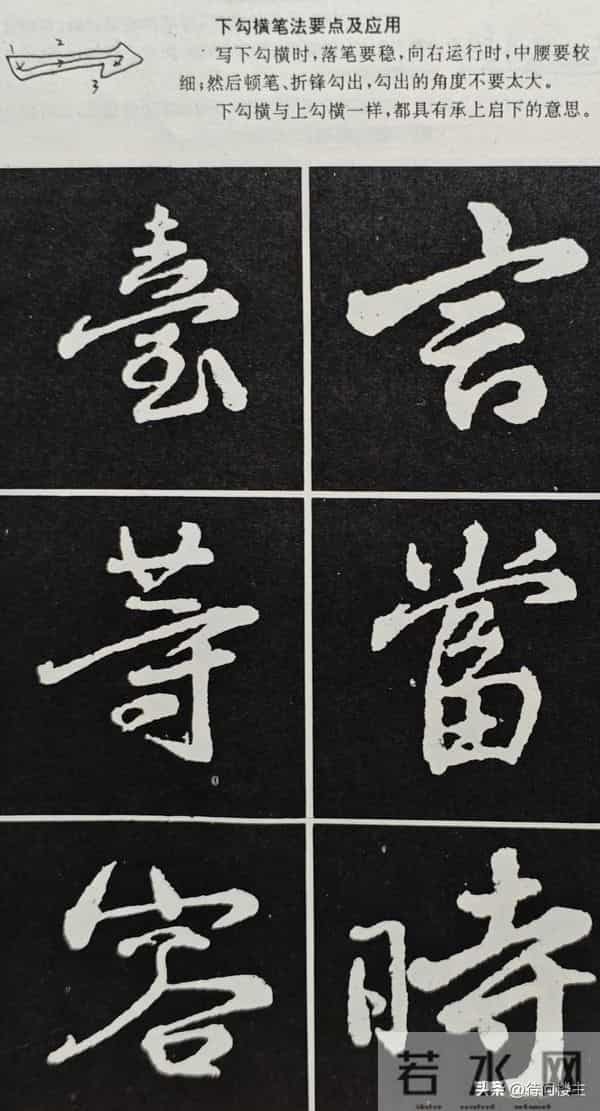 下勾横笔法要点及应用
写下勾横时，落笔要稳，向右运行时，中腰要较
细；然后顿笔、折锋勾出，勾出的角度不要太大。
下勾横与上勾横一样，都具有承上启下的意思。
1 2 3
言
當
時
臺
等
若水网
头条 @待问楼主